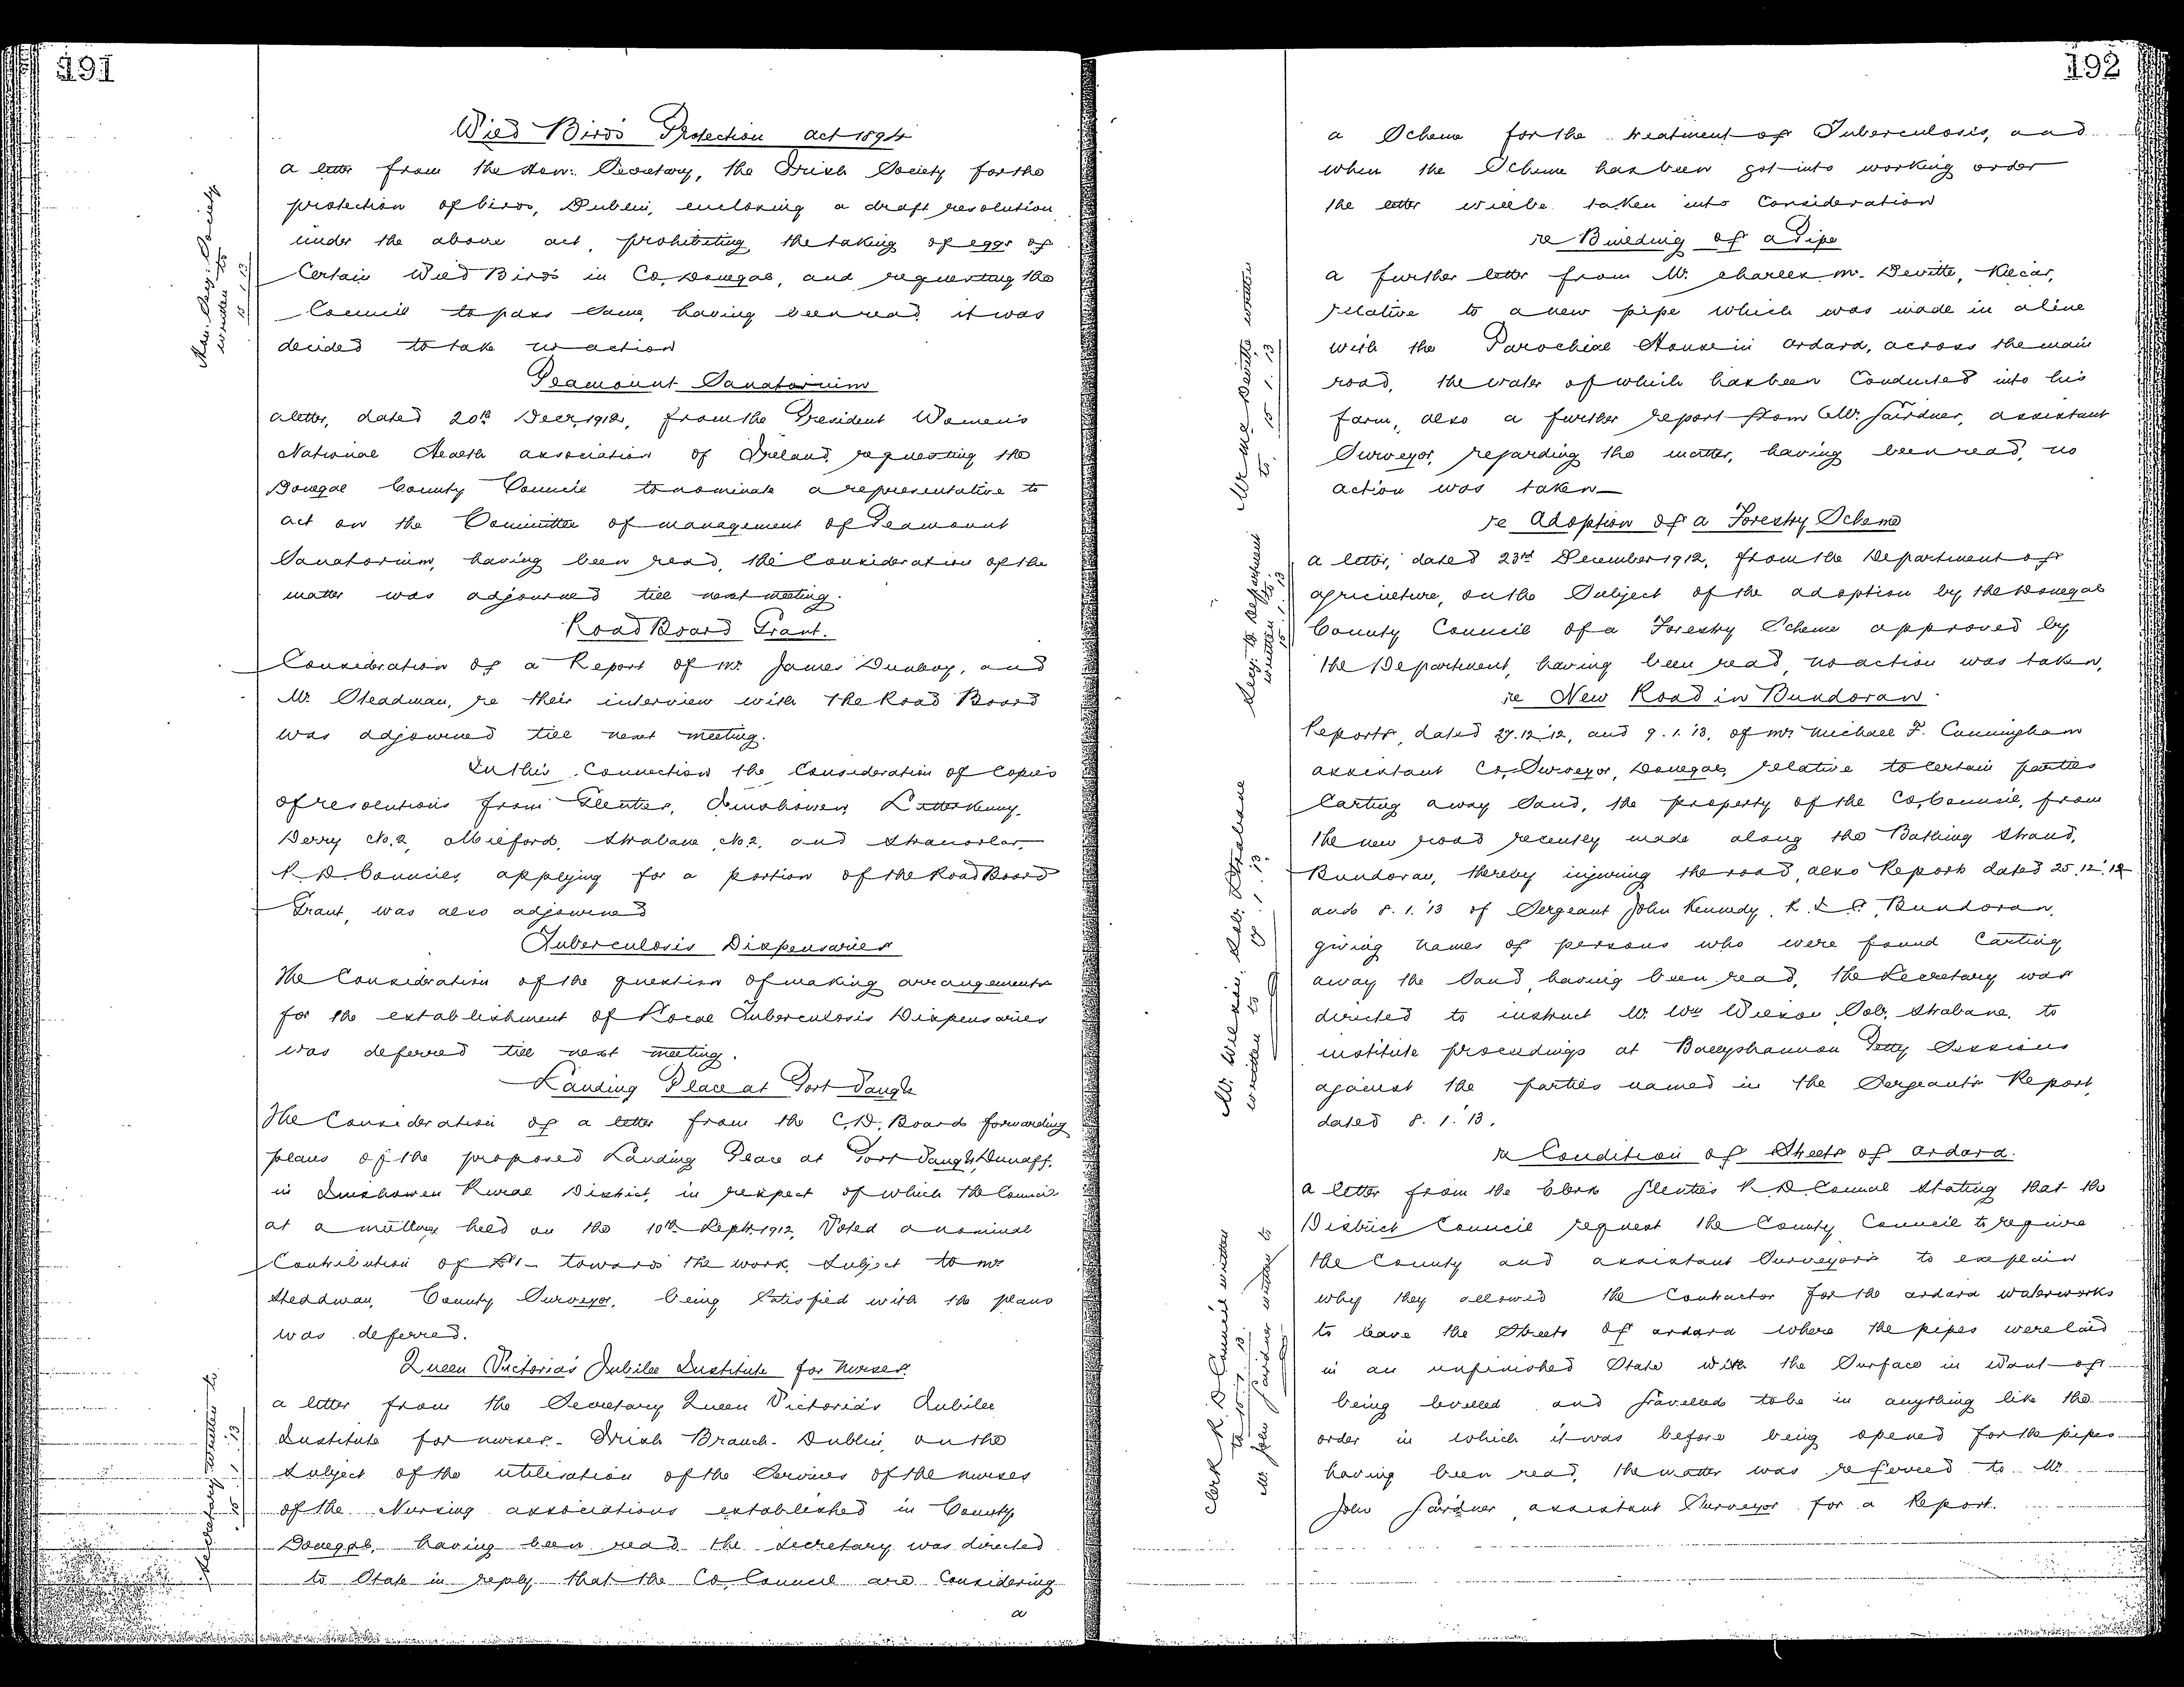 191
Wild Birds Protection Act 1894
a letter from the Hon: Secretary, the Irish Society for the
protection of birds, Dublin, enclosing a draft resolution
under the above act, prohibiting the taking of eggs of
Certain Wild Birds in Co. Donegal, and requesting the
Council to pass same, having been read, it was
decided to take no action
Hon. Secy: Society
written to
15.1.13
Peamount Sanatorium
a letter, dated 20th Decr, 1912, from the President Women's
National Health association of Ireland, requesting the
Donegal County Council to nominate a representative to
act on the Committee of management of Peamount
Sanatorium, having been read, the Consideration of the
matter was adjourned till next meeting.
Road Board Grant.
Consideration of a Report of Mr. James Dunboy, and
Mr. Steadman, re their interview with the Road Board
was adjourned till next meeting.
In this Connection the Consideration of Copies
of resolutions from Glenties, Inishowen, Letterkenny,
Derry No. 2, Milford, Strabane No. 2, and Stranorlar
R. D. Councils, applying for a portion of the Road Board
Grant, was also adjourned
Tuberculosis Dispensaries
The Consideration of the question of making arrangements
for the establishment of Local Tuberculosis Dispensaries
was deferred till next meeting.
Landing Place at Port Saugh
The Consideration of a letter from the C. D. Board forwarding
plans of the proposed Landing Place at Port Saugh, Dunaff,
in Inishowen Rural District, in respect of which the Council
at a meeting held on the 10th Sept. 1912, Voted a nominal
Contribution of £1/- towards the work, Subject to Mr.
Steadman, County Surveyor, being Satisfied with the plans
was deferred.
Queen Victoria's Jubilee Institute for Nurses.
a letter from the Secretary Queen Victoria's Jubilee
Institute for nurses - Irish Branch - Dublin, on the
Subject of the utilisation of the Services of the nurses
of the Nursing associations established in County
Donegal, having been read, the Secretary was directed
to State in reply that the Co. Council are Considering
a
Secretary written to
15.1.13
192
a Scheme for the treatment of Tuberculosis, and
when the Scheme has been got into working order
the letter will be taken into Consideration
re Building of a Pipe
a further letter from Mr. Charles Mc. Devitte, Kilcar,
relative to a new pipe which was made in a line
with the Parochial House in Ardara, across the main
road, the water of which has been Conducted into his
farm, also a further report from Mr. Gairdner, assistant
Surveyor, regarding the matter, having been read, no
action was taken
Mr Mc Devitte written
to. 15.1.13
re Adoption of a Forestry Scheme
a letter, dated 23rd December 1912, from the Department of
agriculture, on the Subject of the adoption by the Donegal
County Council of a Forestry Scheme approved by
the Department, having been read, no action was taken.
Secy. to Department
written to. 15.1.13
re New Road in Bundoran
Reports, dated 27.12.12, and 9.1.13, of Mr Michael F. Cunningham
assistant Co. Surveyor, Donegal, relative to certain parties
Carting away Sand, the property of the Co. Council, from
the new road recently made along the Bathing Strand,
Bundoran, thereby injuring the road, also Reports dated 25.12.12
and 8.1.'13 of Sergeant John Kennedy, R. I. C. Bundoran,
giving names of persons who were found Carting
away the Sand, having been read, the Secretary was
directed to instruct Mr. Wm Wilson, Solr, Strabane, to
institute proceedings at Ballyshannon Petty Sessions
against the parties named in the Sergeant's Report
dated 8.1.'13.
Mr. Wilson, Solr. Strabane
written to
re Condition of Streets of Ardara.
a letter from the Clerk Glenties R. D. Council Stating that the
District Council request the County Council to require
the County and assistant Surveyors to explain
why they allowed the Contractor for the Ardara waterworks
to leave the Streets of Ardara where the pipes were laid
in an unfinished State with the Surface in Want of
being levelled and gravelled to be in anything like the
order in which it was before being opened for the pipes
having been read, the matter was referred to Mr.
John Gairdner assistant Surveyor for a Report.
Clerk R. D Council written
to 15.1.13.
Mr. John Gairdner written to